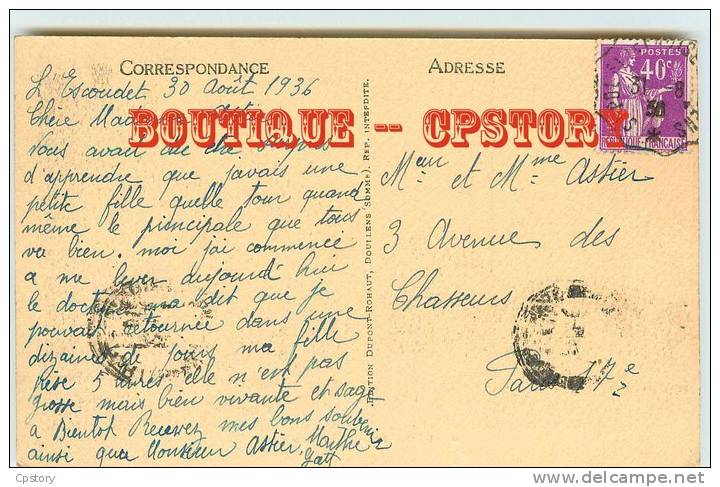 CORRESPONDANCE
ADRESSE
POSTES
40c
RÉPUBLIQUE FRANÇAISE
BOUTIQUE -- CPSTORY
L'Escoudet 30 Août 1936
Chère
Vous avait du été
d'apprendre que javais une
petite fille quelle tour quand
même le principale que tous
va bien. moi jai commencée
a me lever aujourd'hui
le docteur ma dit que je
pouvais retournée dans une
dizaines de jours ma fille
pèse 5 livres elle n'est pas
grosse mais bien vivante et sage
a Bientot Recevez mes bons souvenir
ainsi que Monsieur Astier. Marthe
EDITION DUPONT-ROHAUT, DOULLENS (SOMME). REP. INTERDITE.
Meur et Mme Astier
3 Avenue des
Chasseurs
Paris 17e
Cpstory
delcampe.net